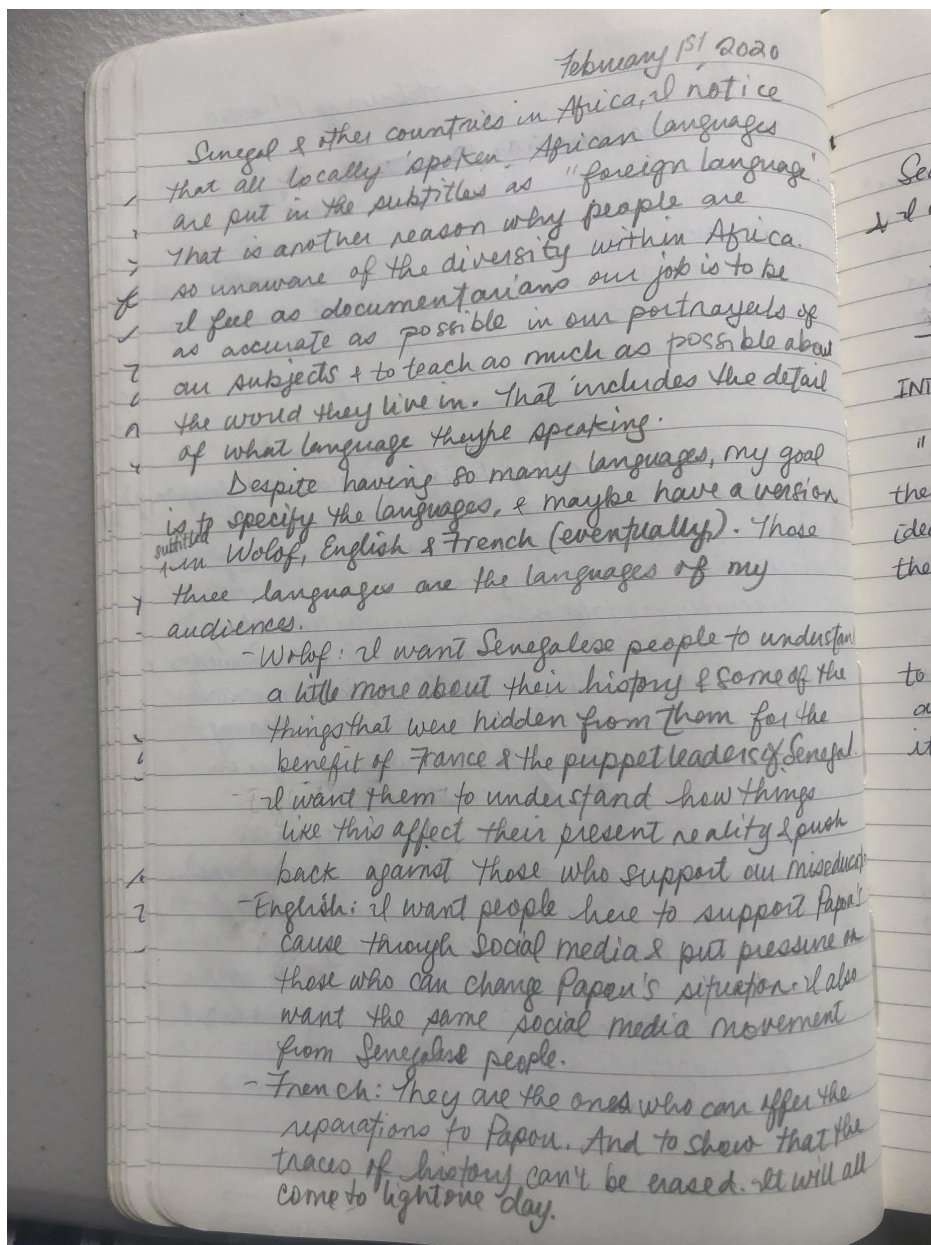 February 1st, 2020
Senegal & other countries in Africa, I notice
that all locally spoken African languages
are put in the subtitles as "foreign language".
That is another reason why people are
so unaware of the diversity within Africa.
I feel as documentarians our job is to be
as accurate as possible in our portrayals of
our subjects + to teach as much as possible about
the world they live in. That includes the detail
of what language they're speaking.
Despite having so many languages, my goal
is to specify the languages, & maybe have a version
subtitled in Wolof, English & French (eventually). Those
three languages are the languages of my
audiences.
- Wolof: I want Senegalese people to understan
a little more about their history & some of the
things that were hidden from them for the
benefit of France & the puppet leaders of Senegal.
I want them to understand how things
like this affect their present reality & push
back against those who support our miseducat
- English: I want people here to support Papou's
cause through social media & put pressure on
those who can change Papou's situation. I also
want the same social media movement
from Senegalese people.
- French: They are the ones who can offer the
reparations to Papou. And to show that the
traces of history can't be erased. It will all
come to light one day.
Sec
& I
INT
"
the
idea
the
to
it